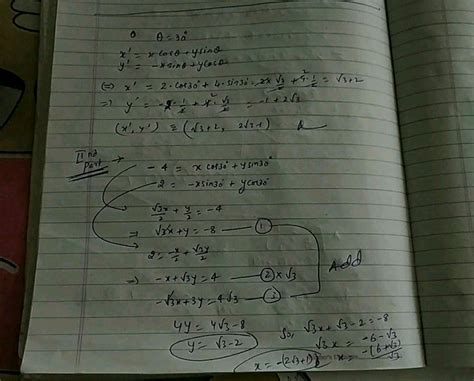 θ = 30°
x' = x cosθ + y sinθ
y' = -x sinθ + y cosθ
⇒ x' = 2·cos30° + 4·sin30° = 2×√3/2 + 4·1/2 = √3+2
⇒ y' = -2·1/2 + 4·√3/2 = -1 + 2√3
(x', y') ≡ (√3+2, 2√3-1)
IInd part →
-4 = x cos30° + y sin30°
2 = -x sin30° + y cos30°
√3x/2 + y/2 = -4
⇒ √3x + y = -8 — ①
2 = -x/2 + √3y/2
⇒ -x + √3y = 4 — ② × √3
-√3x + 3y = 4√3 — ③
Add
4y = 4√3 - 8
y = √3 - 2
So, √3x + √3 - 2 = -8
√3x = -6 - √3
x = -(6+√3)/√3
x = -(2√3+1)